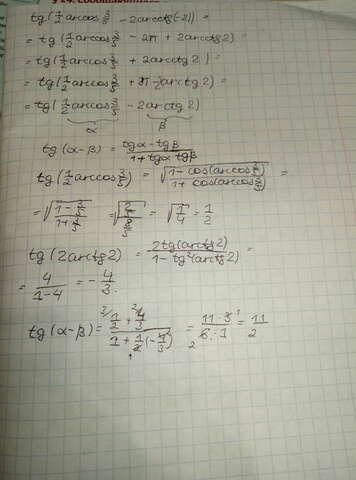 tg(1/2 arccos 3/5 - 2arcctg(-2)) =
= tg(1/2 arccos 3/5 - 2π + 2arcctg 2) =
= tg(1/2 arccos 3/5 + 2arcctg 2) =
= tg(1/2 arccos 3/5 + π - 2arctg 2) =
= tg(1/2 arccos 3/5 - 2arctg 2)
α β
tg(α-β) = (tgα - tgβ)/(1 + tgα tgβ)
tg(1/2 arccos 3/5) = √((1 - cos(arccos 3/5))/(1 + cos(arccos 3/5))) =
= √((1 - 3/5)/(1 + 3/5)) = √((2/5)/(8/5)) = √(1/4) = 1/2
tg(2arctg 2) = 2tg(arctg 2)/(1 - tg²(arctg 2)) =
= 4/(1-4) = -4/3.
tg(α-β) = (1/2 + 4/3)/(1 + 1/2(-4/3)) = (11·3)/(6·1) = 11/2